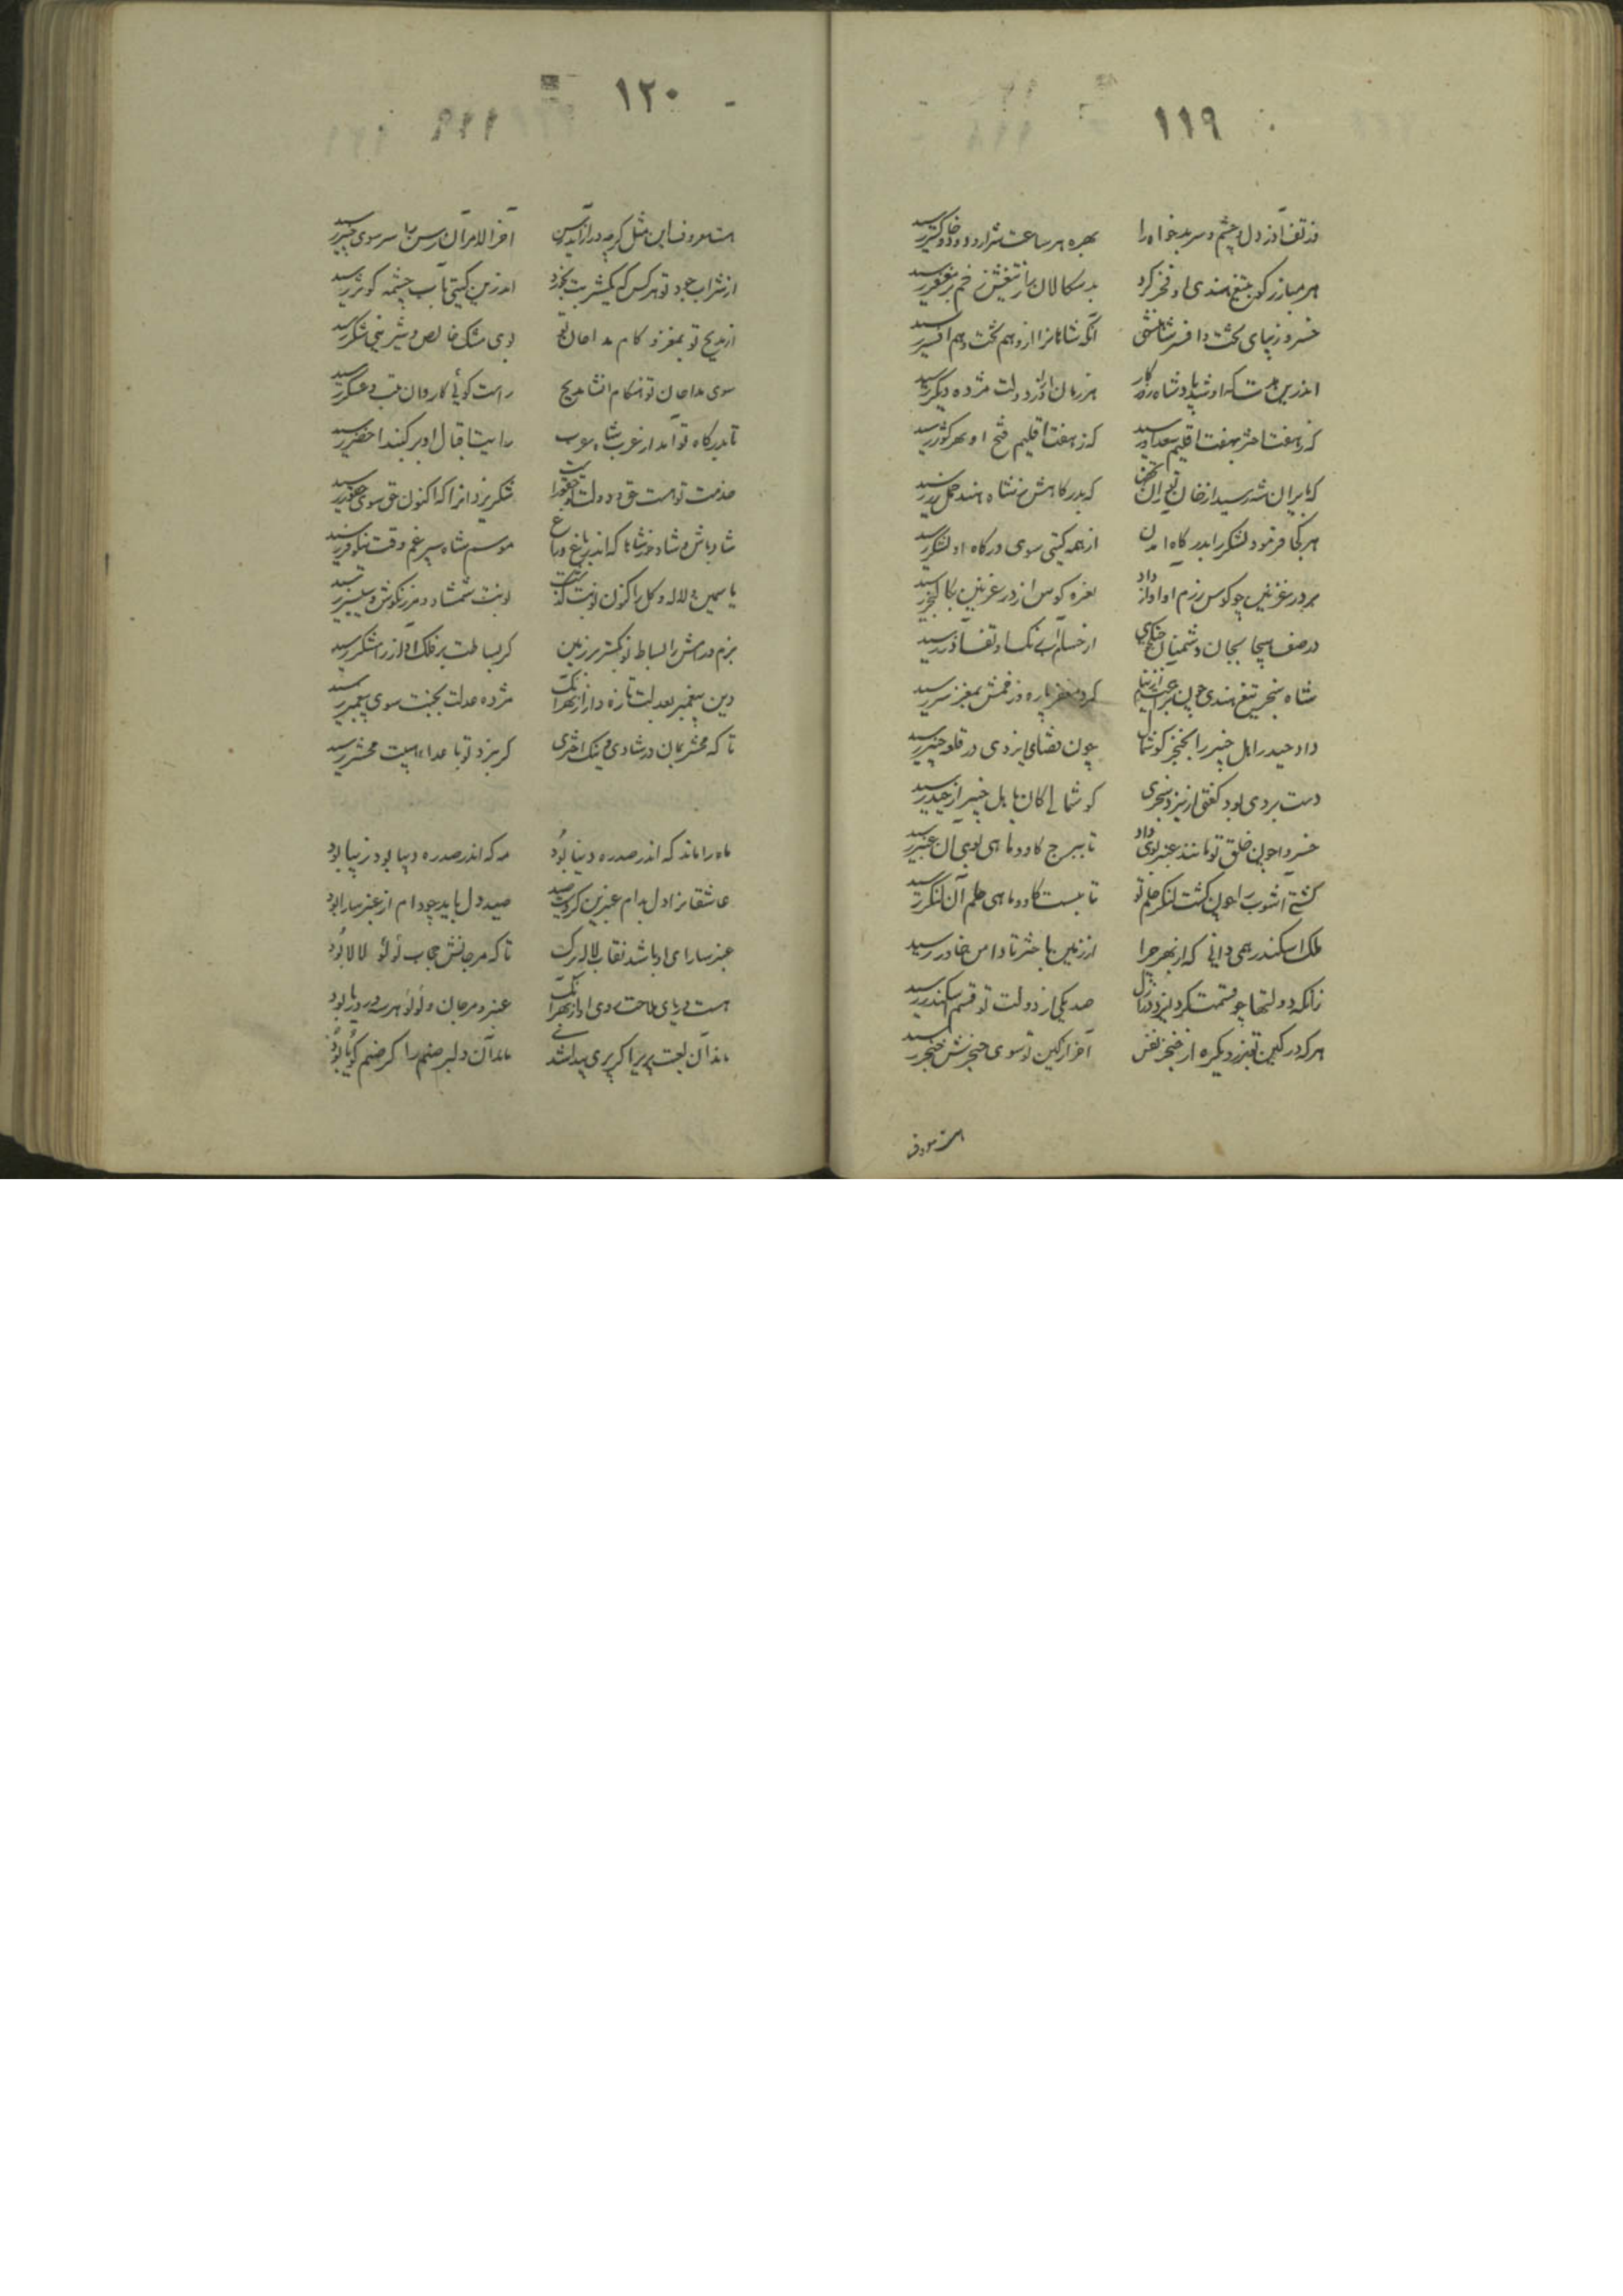 ۱۱۹
وز تف آذر دل و چشم و سر بدخواه را بهره هر ساعت شرار و دود و خاکستر رسید
هر مبارز کو بتیغ هندی او فخر کرد بدسکالان را ز تیغش زخم بر مغفر رسید
خسرو زیبای تخت و افسر شاهنشهی آنکه شاهانرا ازو هم تخت و هم افسر رسید
اندرین مدت که او شد پادشاه هر زمان او را ز دولت مژده دیگر رسید
کز هفت اختر بهفت اقلیم سعد اور رسید که ز هفت اقلیم فتح او بهر کشور رسید
که بایران شه رسید از خان توران که بدرکاهش ز شاه هند حمل زر رسید
هر کجا فرمود لشکر را بدرکاه آمدن از همه کیتی سوی درکاه او لشکر رسید
بر در غزنین چو کوس رزم او آواز داد نعره کوس از در غزنین بکالنجر رسید
در صف هیجا بجان دشمنان از حسام آب رنک او تف آذر رسید
شاه سنجر تیغ هندی چون کرد مغفر پاره و زخمش بمغز سر رسید
داد حیدر اهل خیبر را بخنجر کوشمال چون قضای ایزدی در قلعه خیبر رسید
دست بردی بود کفتی از نبرد سنجری کوشمالی کان باهل خیبر از حیدر رسید
خسروا چون خلق تو مانند عنبر بوی داد تا ببرج کاو و ماهی بوی آن عنبر رسید
کشتی آشوب را چون کشت لنکر حلم تو تا بپشت کاو و ماهی حلم آن لنکر رسید
ملک اسکندر همی دانی که از بهر چرا از زمین باختر تا دامن خاور رسید
زانکه دولتها چو قسمت کرد ایزد در ازل صد یکی از دولت تو قسم اسکندر رسید
هر که در کین تو زد یکره از خنجر نفس آخر از کین تو سوی حنجرش خنجر رسید
هست معروف
۱۲۰
هست معروف این مثل کرچه دراز آید رسن آخر الامر آن رسن را سر سوی چنبر رسید
از شراب جود تو هر کس که یکشربت بخورد اندرین کیتی بآب چشمه کوثر رسید
از مدیح تو بمغز و کام مداحان تو بوی مشک خالص و شیرینی شکر رسید
سوی مداحان تو هنکام انشاء مدیح راست کوئی کاروان تبت و عسکر رسید
تا بدرکاه تو آمد از عرب شاه عرب رایت اقبال او بر کنبد اخضر رسید
خدمت تو هست حق و دولت تو حقور شکر یزدانرا که اکنون حق سوی حقور رسید
شاد باش و شاد خور شاها که اندر باغ و راغ موسم شاه سپرغم وقت نیلوفر رسید
یاسمین و لاله و کل را کنون نوبت کذشت نوبت شمشاد و مرزنکوش و سیسنبر رسید
بزم و رامش را بساط نو بکستر بر زمین کز بساطت بر فلک آواز رامشکر رسید
دین پیغمبر بعدلت تازه دار از بهر آنک مژده عدلت بجنت سوی پیغمبر رسید
تا که محشر بمان در شادی و نیک اختری کز نبرد تو باعدا هیبت محشر رسید
ماه را ماند که اندر صدره دیبا بود مه که اندر صدره دیبا بود زیبا بود
عاشقانرا دل بدام عنبرین کردست صید صید دل باید چو دام از عنبر سارا بود
عنبر سارای او باشد نقاب لاله برک تا که مرجانش حجاب لؤلؤ لالا بود
هست دریای ملاحت روی او از بهر آنک عنبر و مرجان و لؤلؤ هر سه در دریا بود
ماند آن لعبت پری را کر پری پیدا شدی ماند آن دلبر صنم را کر صنم کویا بود